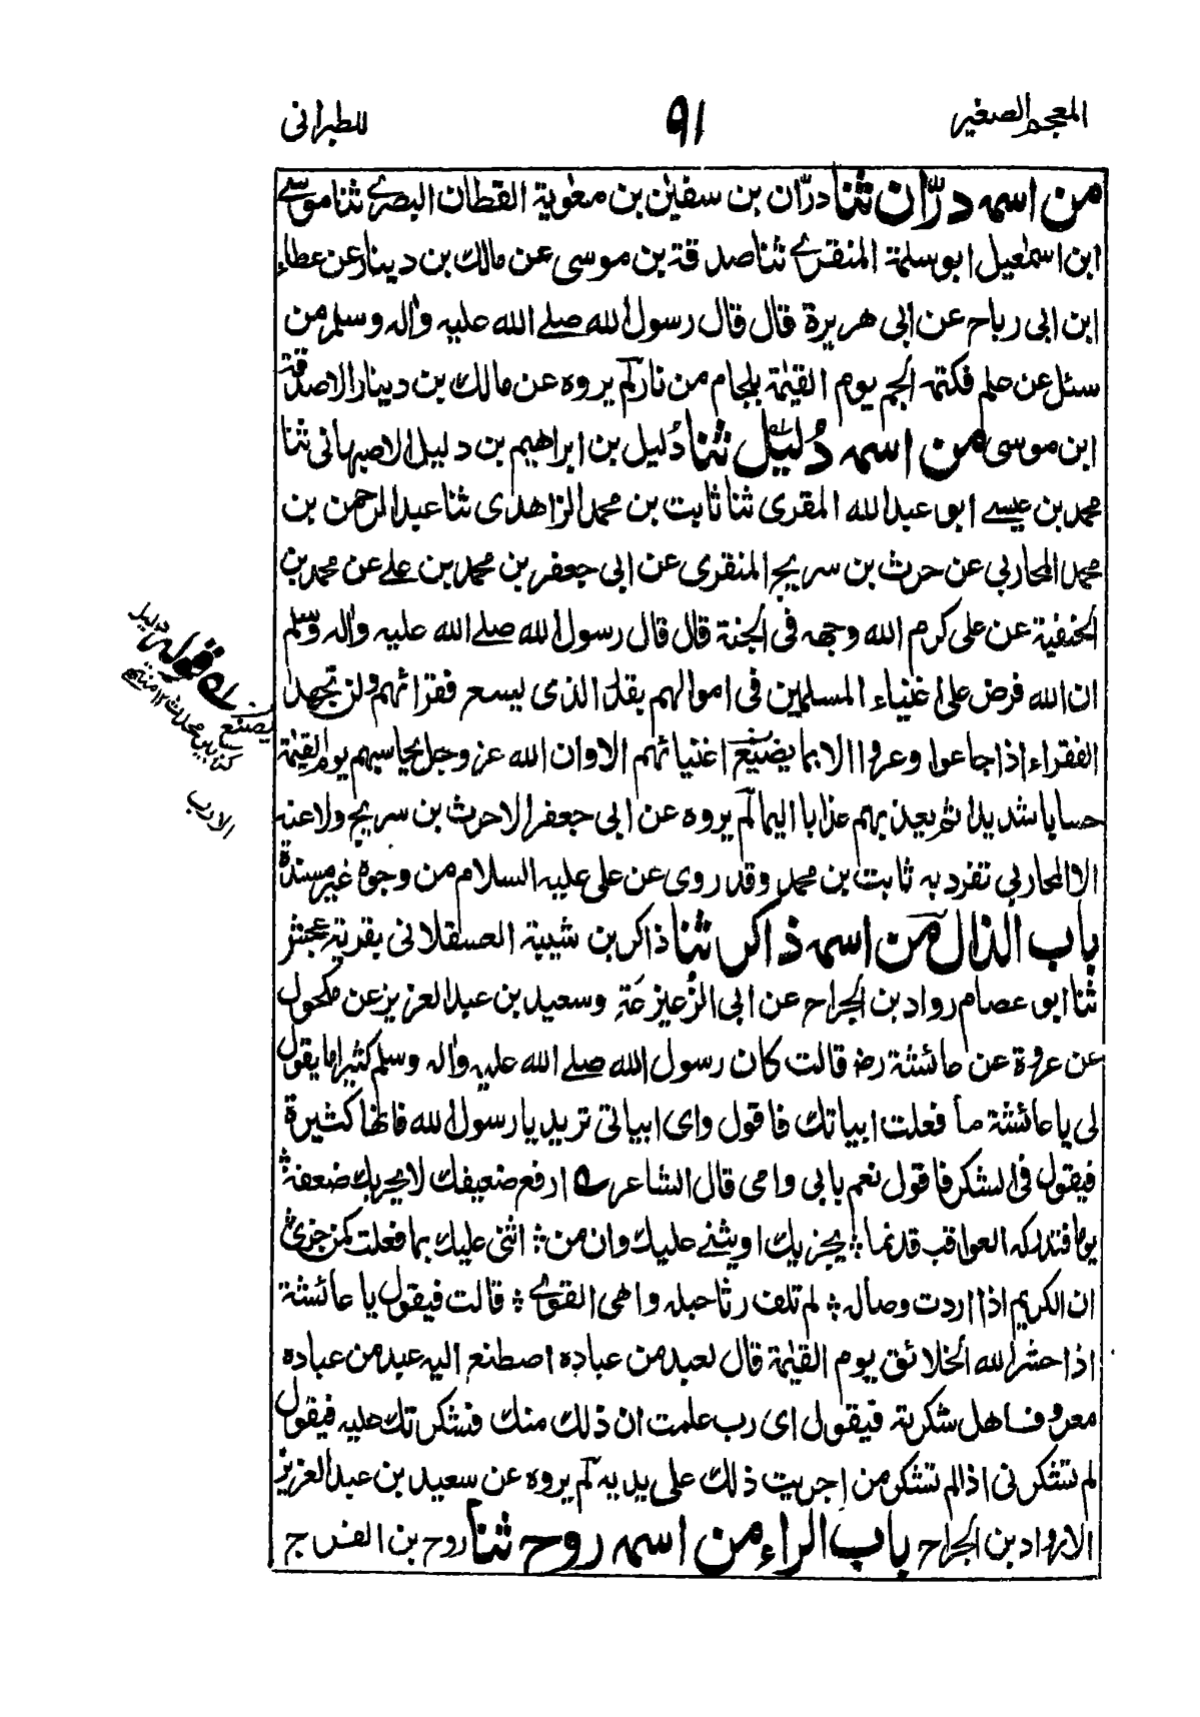 المعجم الصغير
٩١
للطبرانى
من اسمه درّان ثنا درّان بن سفيٰن بن معٰوية القطان البصرے ثنا موسے
ابن اسمٰعيل ابو سلمة المنقرے ثنا صدقة بن موسى عن مالك بن دينار عن عطاء
ابن ابى رباح عن ابى هريرة قال قال رسول الله صلے الله عليه واٰله وسلم من
سئل عن علم فكتمه الجم يوم القيٰمة بلجام من نار لم يروه عن مالك بن دينار الا صدقة
ابن موسى من اسمه دُليل ثنا دُليل بن ابراهيم بن دليل الاصبهانى ثنا
محمد بن عيسے ابو عبد الله المقرى ثنا ثابت بن محمد الزاهدى ثنا عبد الرحمن بن
محمد المحاربى عن حرث بن سريج المنقرى عن ابى جعفر بن محمد بن علے عن محمد بن
الحنفية عن على كرم الله وجهه فى الجنة قال قال رسول الله صلے الله عليه واٰله وسلم
ان الله فرض على اغنياء المسلمين فى اموالهم بقدر الذى يسع فقرائهم ولن تجهد
الفقراء اذا جاعوا وعروا الا بما يضيّع اغنيائهم الا وان الله عز وجل يحاسبهم يوم القيٰمة
حسابا شديدا ثم يعذبهم عذابا اليما لم يروه عن ابى جعفر الا حرث بن سريج ولا عنه
الا المحاربى تفرد به ثابت بن محمد وقد روى عن على عليه السلام من وجوه غير مسندة
باب الذال من اسمه ذاكر ثنا ذاكر بن شيبة العسقلانى بقرية عجنثر
ثنا ابو عصام رواد بن الجراح عن ابى الزُعيزعَةِ وسعيد بن عبد العزيز عن مكحول
عن عروة عن عائشة رض قالت كان رسول الله صلے الله عليه واٰله وسلم كثيرا ما يقول
لى يا عائشة ما فعلت ابياتك فاقول واى ابياتى تريد يا رسول الله فانها كثيرة
فيقول فى الشكر فاقول نعم بابى وامى قال الشاعر ؎ ارفع ضعيفك لا يحربك ضعفه؞
يوما فتدركه العواقب قد نما ؞ يجزيك او يثنے عليك وان من ؞ اثنى عليك بما فعلت كمن جزى؞
ان الكريم اذا اردت وصاله ؞ لم تلف رثا حبله واهى القوے ؞ قالت فيقول يا عائشة
اذا حشر الله الخلائق يوم القيٰمة قال لعبد من عباده اصطنع اليه عبد من عباده
معروفا هل شكرته فيقول اى رب علمت ان ذلك منك فشكرتك عليه فيقول
لم تشكرنى اذا لم تشكر من اجريت ذلك على يديه لم يروه عن سعيد بن عبد العزيز
الا رواد بن الجراح باب الراء من اسمه روح ثنا روح بن الفرج
له قوله دليل
يصنع
الارب